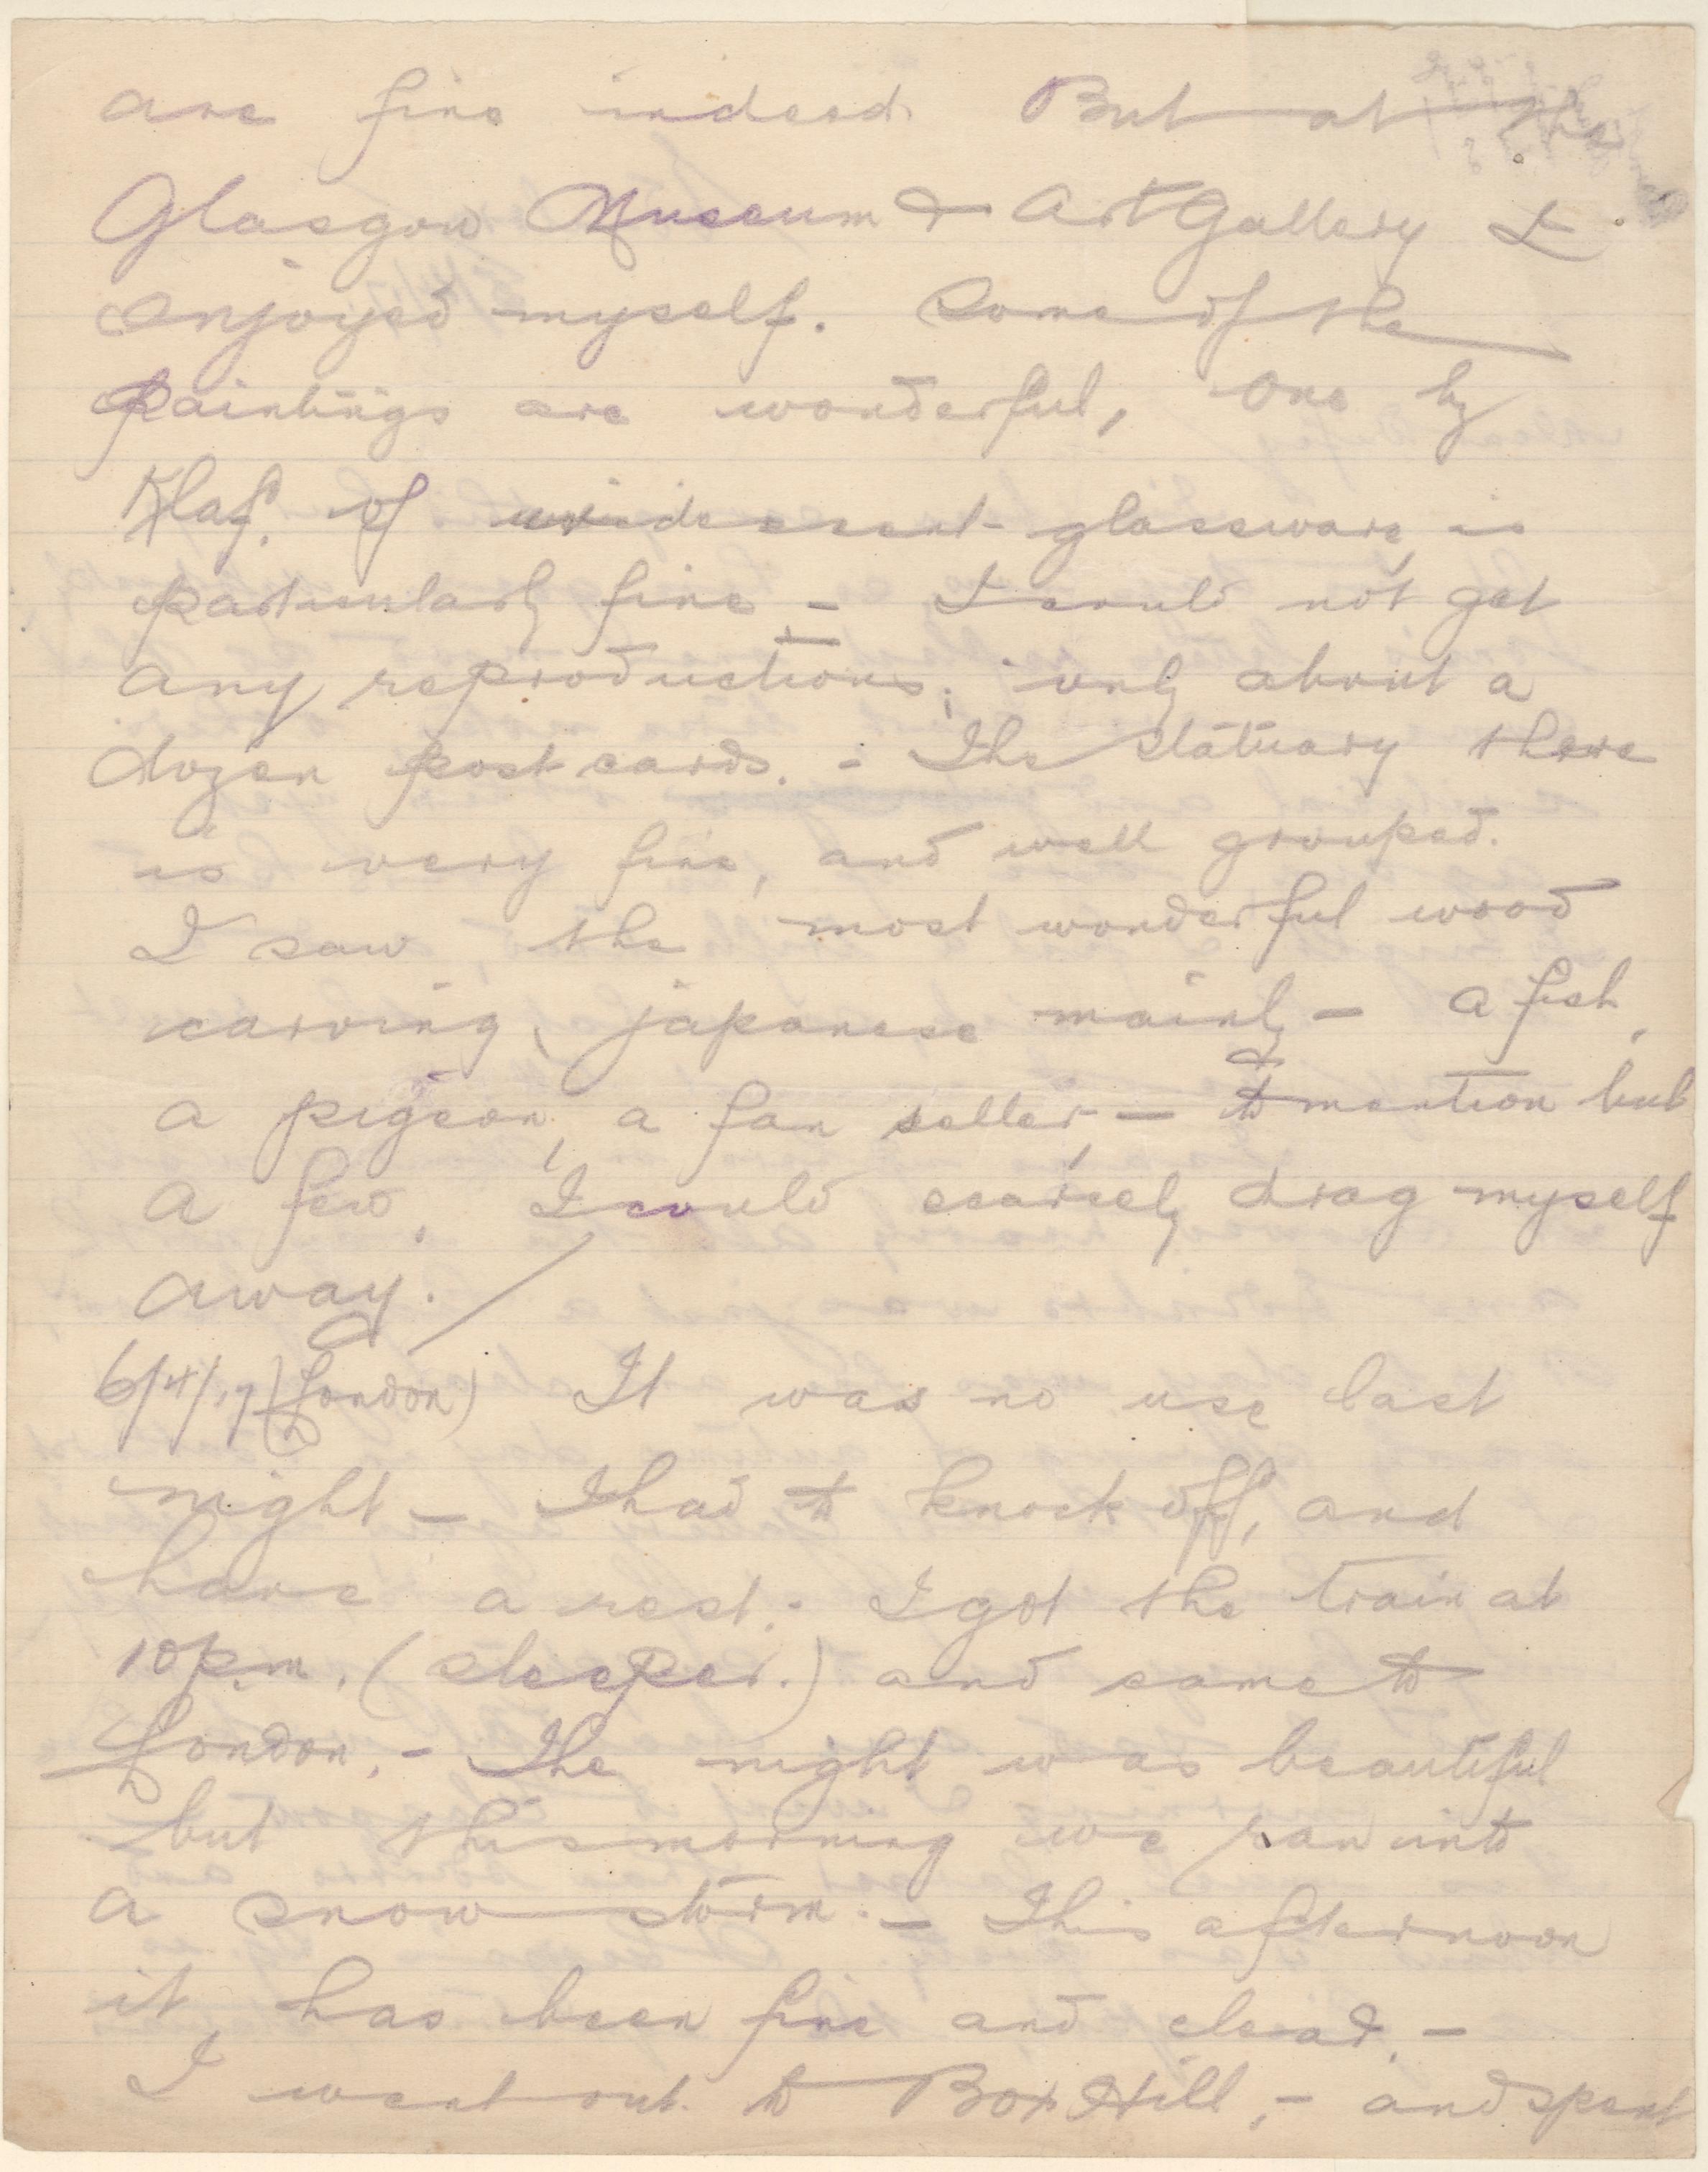 are fine indeed. But at the
Glasgow Museum & Art Gallery I
enjoyed myself. Some of the
paintings are wonderful, One by
Klaf. of irridescent glassware, is
particularly fine – I could not get
any reproductions; only about a
dozen post cards. – The statuary there
is very fine, and well grouped.
I saw the most wonderful wood
carving, japanese mainly – a fish,
a pigeon, a fan seller, – to mention but
a few. I could scarcely drag myself
away.
6/4/17 (London) It was no use last
night – I had to knock off, and
have a rest. – I got the train at
10 p.m. (sleeper.) and came to
London. – The night was beautiful
but this morning we ran into
a snow storm. – This afternoon
it has been fine and clear. –
I went out to Box Hill, – and spent